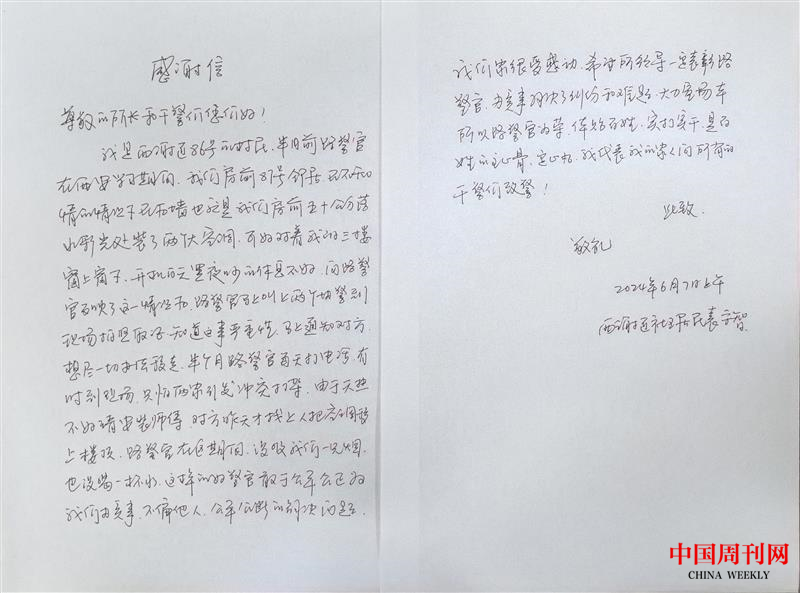 感谢信
尊敬的所长和干警们您们好！
我是西谢通86号的村民，半月前路警官
在西安学习期间，我们房前87号邻居
情的情况下在我们房前五十公分
处装了两个大空调，正好对着我的三楼
窗上窗子，开机白天黑夜吵的休息不好，向路警
官反映了这一情况后，路警官马上叫上两个协警到
现场拍照取证，知道这事严重性，马上通知对方，
想尽一切办法移走，半个月路警官每天打电话，有
时到现场，只怕两家引发冲突打架，由于天热
不好请安装师傅，对方昨天才找上人把空调移
上楼顶，路警官在这期间，没吸我们一只烟，
也没喝一杯水，这样的好警官敢于公平公正为
我们办实事，不偏他人，公平公断的解决问题，
我们家很受感动，希望所领导一定表彰路
警官，为实事解决了纠纷和难题，大力
所以路警官为荣，体贴百姓，实打实干，是百
姓的主心骨，定心帖，我代表我的家人向所有的
干警们致敬！
此致
敬礼
2024年6月7日上午
西谢通社区居民袁守智
中国周刊网
CHINA WEEKLY